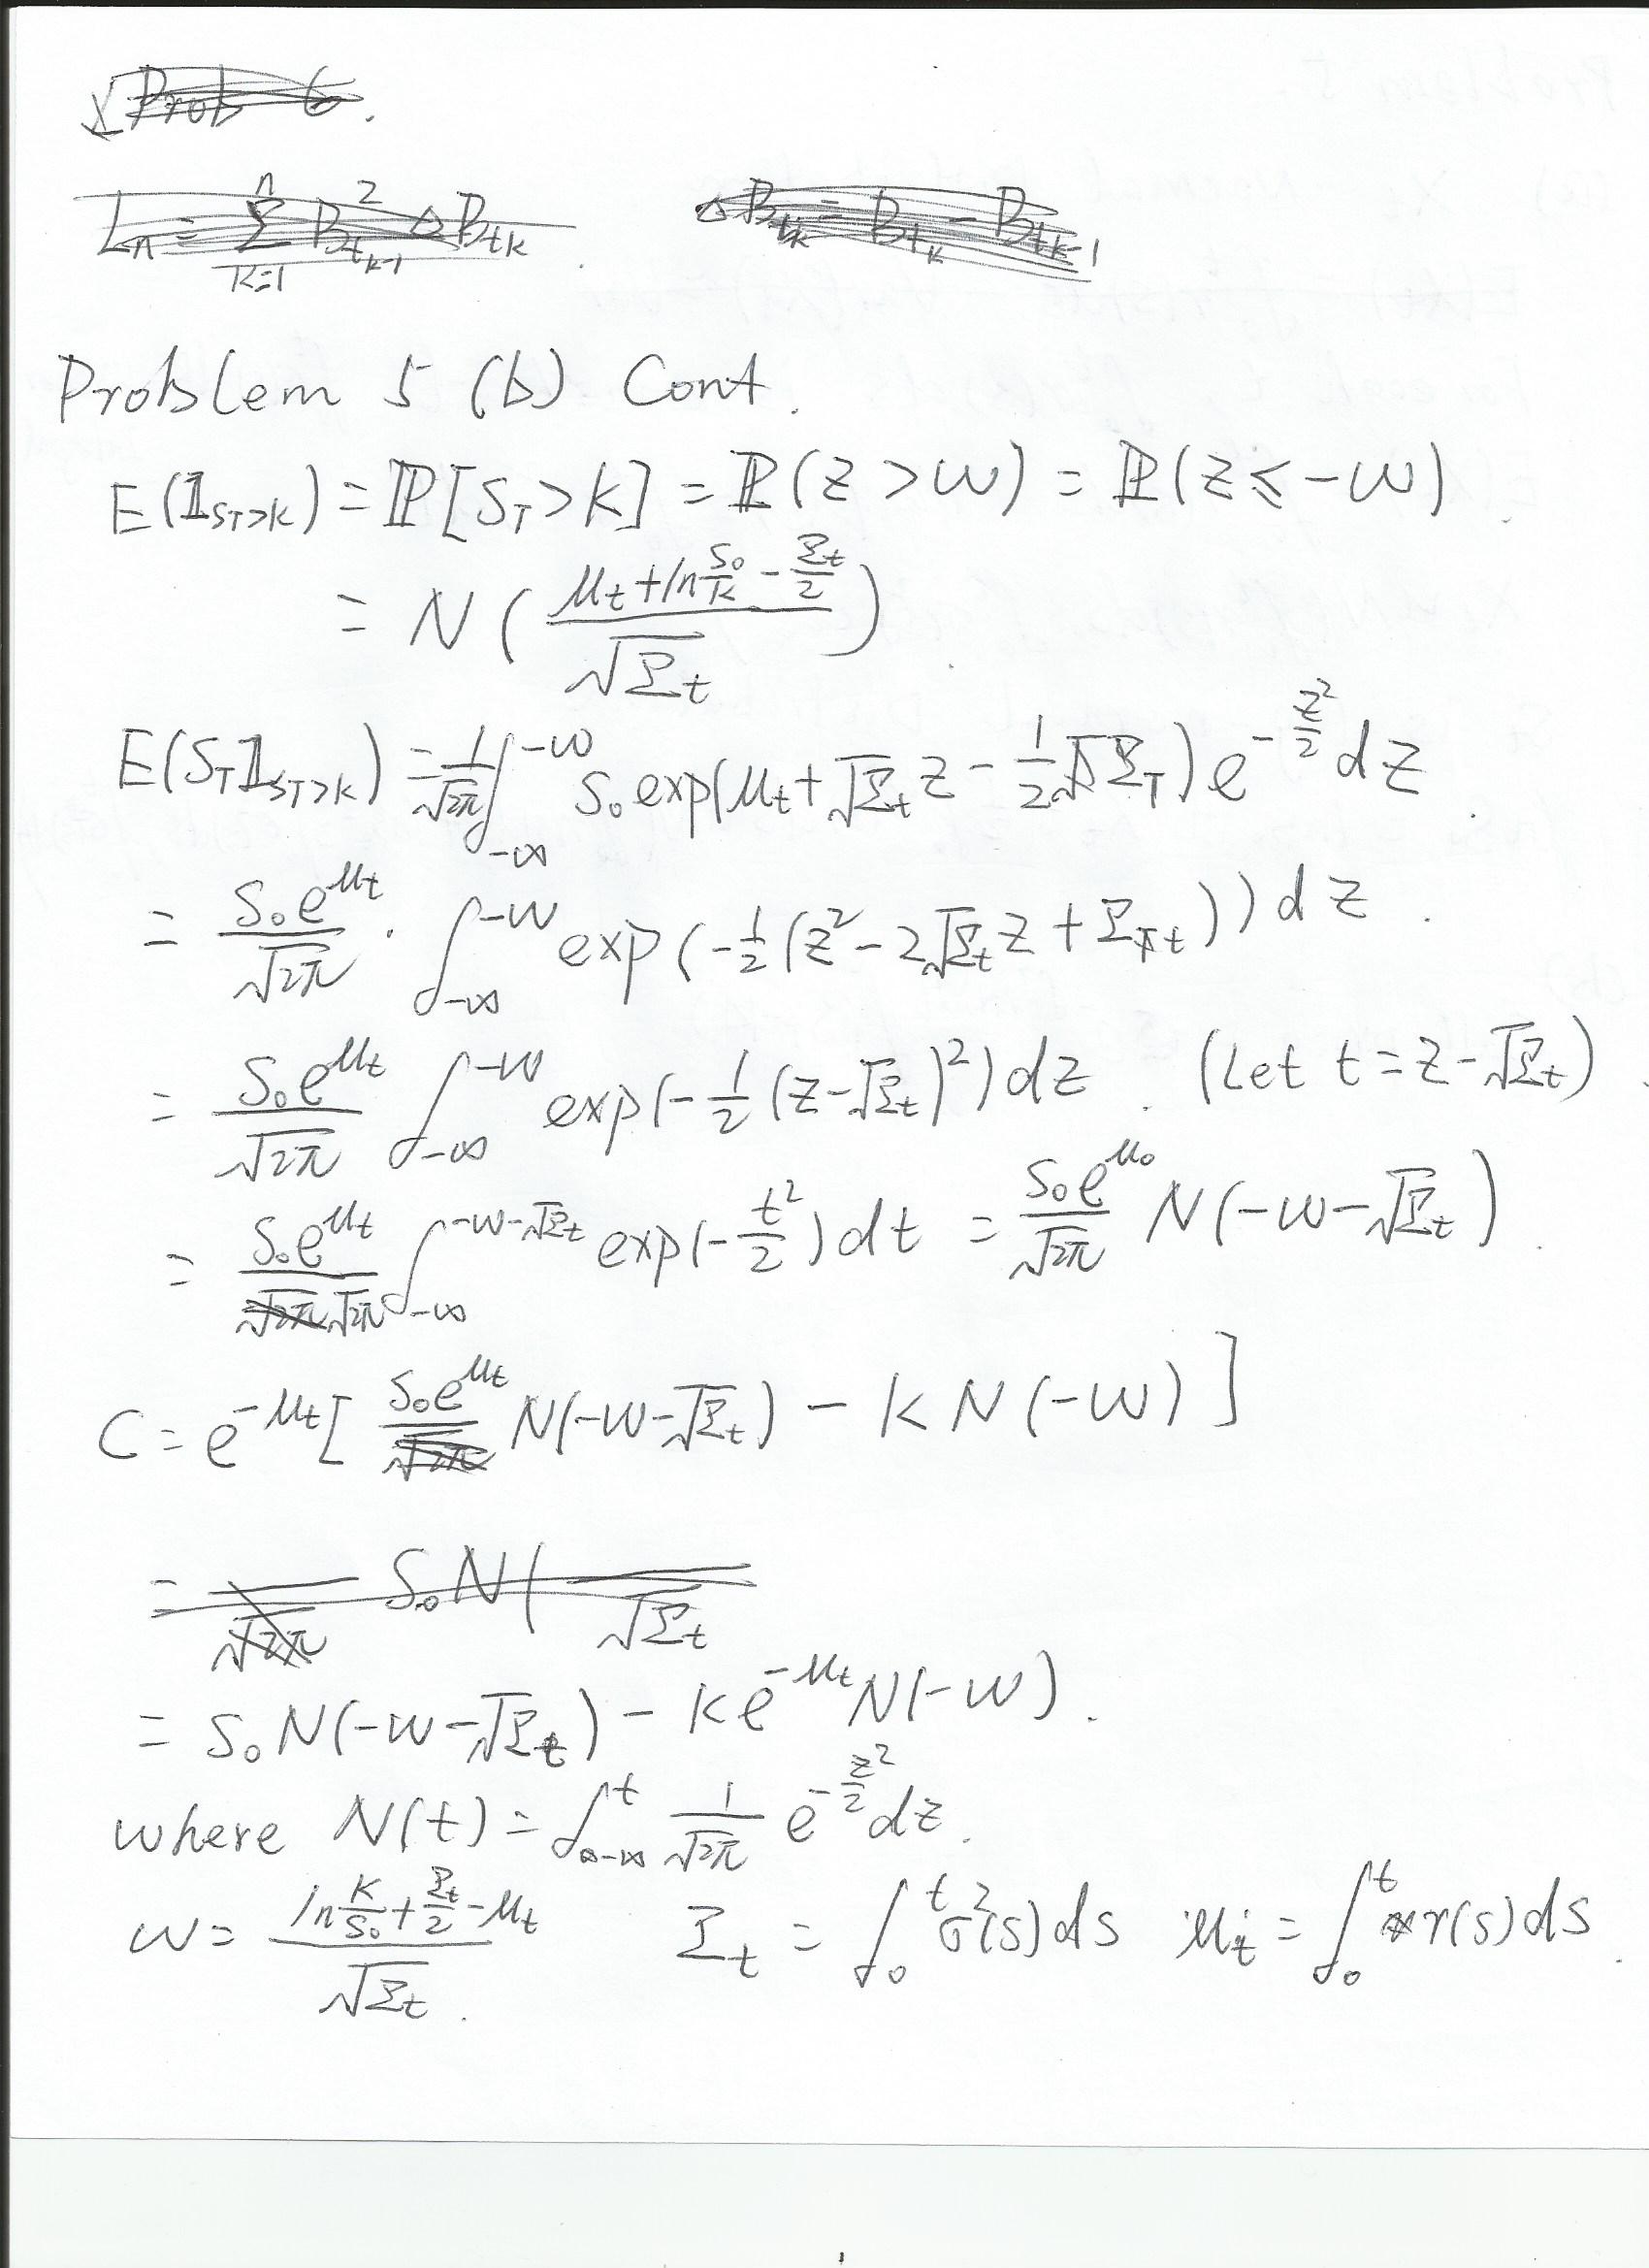 Prob 6.
L_n = \sum_{k=1}^{n} B_{t_{k-1}}^2 ΔB_{t_k}     ΔB_{t_k} = B_{t_k} - B_{t_{k-1}}
Problem 5 (b) Cont.
E(𝟙_{S_T>K}) = ℙ[S_T>K] = ℙ(Z>w) = ℙ(Z≤-w).
= N( \frac{μ_t + ln\frac{S_0}{K} - \frac{Σ_t}{2}}{\sqrt{Σ_t}} ).
E(S_T 𝟙_{S_T>K}) = \frac{1}{\sqrt{2π}} ∫_{-∞}^{-w} S_0 exp(μ_t + \sqrt{Σ_t} z - \frac{1}{2} Σ_T) e^{-\frac{z^2}{2}} dz.
= \frac{S_0 e^{μ_t}}{\sqrt{2π}} · ∫_{-∞}^{-w} exp(-\frac{1}{2}(z^2 - 2\sqrt{Σ_t} z + Σ_t)) dz.
= \frac{S_0 e^{μ_t}}{\sqrt{2π}} ∫_{-∞}^{-w} exp(-\frac{1}{2}(z-\sqrt{Σ_t})^2) dz. (Let t = z-\sqrt{Σ_t}).
= \frac{S_0 e^{μ_t}}{\sqrt{2π}} ∫_{-∞}^{-w-\sqrt{Σ_t}} exp(-\frac{t^2}{2}) dt = \frac{S_0 e^{μ_0}}{\sqrt{2π}} N(-w-\sqrt{Σ_t}).
C = e^{-μ_t} [ \frac{S_0 e^{μ_t}}{\sqrt{2π}} N(-w-\sqrt{Σ_t}) - K N(-w) ]
= \frac{}{\sqrt{2π}} S_0 N( \frac{}{\sqrt{Σ_t}}
= S_0 N(-w-\sqrt{Σ_t}) - K e^{-μ_t} N(-w).
where N(t) = ∫_{-∞}^{t} \frac{1}{\sqrt{2π}} e^{-\frac{z^2}{2}} dz.
w = \frac{ln\frac{K}{S_0} + \frac{Σ_t}{2} - μ_t}{\sqrt{Σ_t}}.   Σ_t = ∫_0^t σ^2(s) ds   μ_t = ∫_0^t r(s) ds.